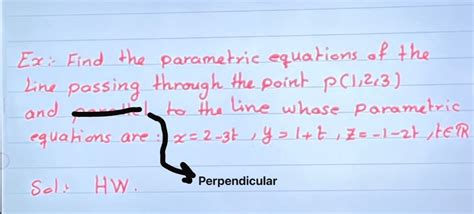 Ex:- Find the parametric equations of the
Line passing through the point P(1,2,3)
and parallel to the line whose parametric
equations are : x = 2-3t , y = 1+t , z = -1-2t , t∈ℝ
Sol:- HW.
Perpendicular